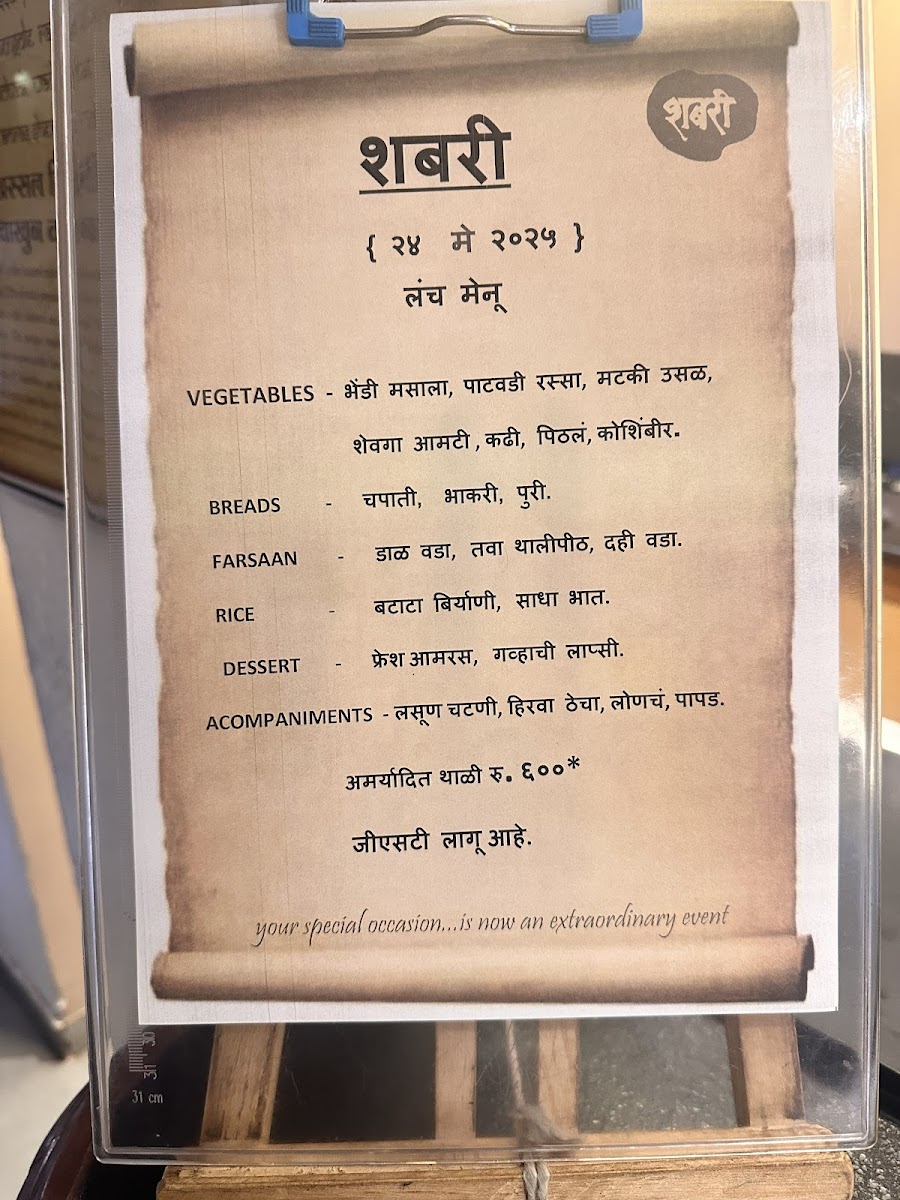 शबरी
शबरी
{ २४ मे २०२५ }
लंच मेनू
VEGETABLES - भेंडी मसाला, पाटवडी रस्सा, मटकी उसळ,
शेवगा आमटी , कढी, पिठलं, कोशिंबीर.
BREADS - चपाती, भाकरी, पुरी.
FARSAAN - डाळ वडा, तवा थालीपीठ, दही वडा.
RICE - बटाटा बिर्याणी, साधा भात.
DESSERT - फ्रेश आमरस, गव्हाची लाप्सी.
ACOMPANIMENTS - लसूण चटणी, हिरवा ठेचा, लोणचं, पापड.
अमर्यादित थाळी रु. ६००*
जीएसटी लागू आहे.
your special occasion...is now an extraordinary event
30
31
31 cm